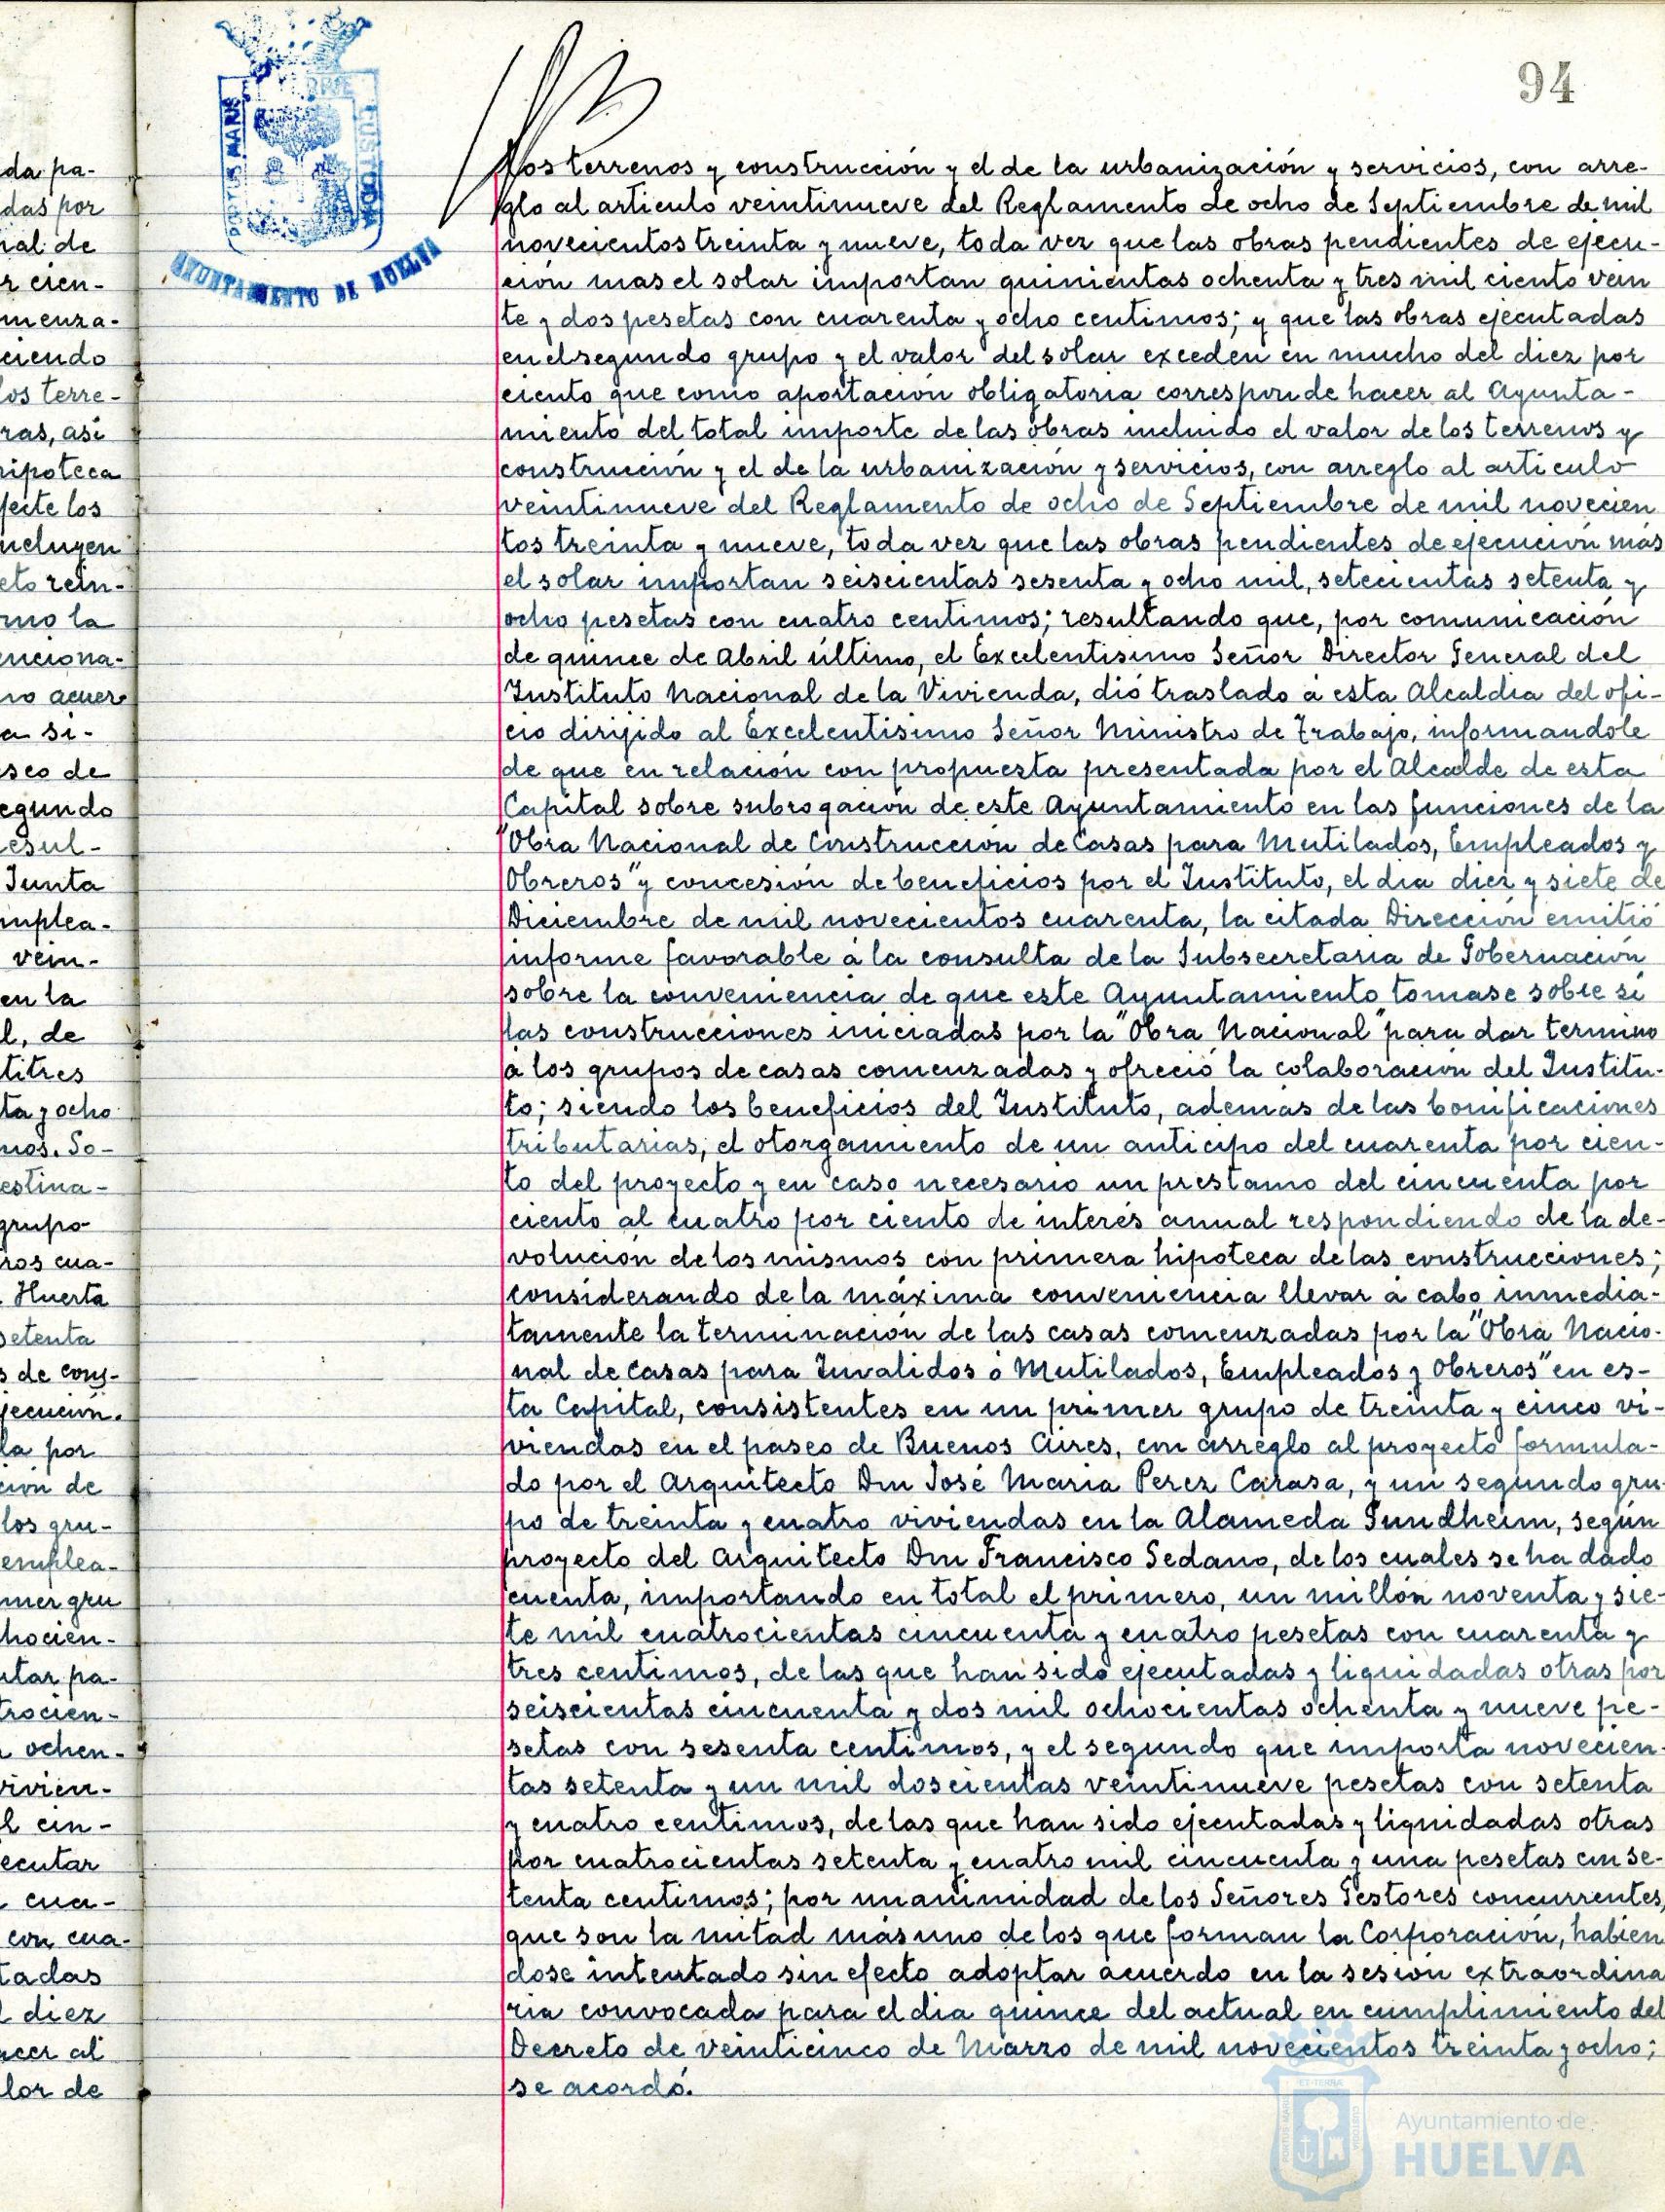 94
PORTUS MARIS
CUSTODIA
AYUNTAMIENTO DE HUELVA
da pa-
das por
nal de
r cien-
menza-
ciendo
los terre-
ras, asi
hipoteca
fecte los
ncluyen
eto rein-
mo la
enciona-
no acuer
a si-
aseo de
egundo
esul-
Junta
mplea-
vein-
en la
l, de
titres
ta y ocho
mos. So-
estina-
grupo
ros cua-
Huerta
setenta
s de cons-
jecución.
la por
ción de
los gru-
emplea-
mer gru
hocien-
utar pa-
trocien-
ochen-
vivien-
l cin-
ecutar
cua-
con cua-
tadas
l diez
acer al
lor de
los terrenos y construcción y el de la urbanización y servicios, con arre-
glo al articulo veintinueve del Reglamento de ocho de Septiembre de mil
novecientos treinta y nueve, toda vez que las obras pendientes de ejecu-
ción mas el solar importan quinientas ochenta y tres mil ciento vein
te y dos pesetas con cuarenta y ocho centimos; y que las obras ejecutadas
en el segundo grupo y el valor del solar exceden en mucho del diez por
ciento que como aportación obligatoria corresponde hacer al Ayunta-
miento del total importe de las obras incluido el valor de los terrenos y
construcción y el de la urbanización y servicios, con arreglo al articulo
veintinueve del Reglamento de ocho de Septiembre de mil novecien
tos treinta y nueve, toda vez que las obras pendientes de ejecución más
el solar importan seiscientas sesenta y ocho mil, setecientas setenta y
ocho pesetas con cuatro centimos; resultando que, por comunicación
de quince de Abril último, el Excelentisimo Señor Director General del
Instituto Nacional de la Vivienda, dió traslado á esta Alcaldia del ofi-
cio dirijido al Excelentisimo Señor Ministro de Trabajo, informandole
de que en relación con propuesta presentada por el Alcalde de esta
Capital sobre subrogación de este Ayuntamiento en las funciones de la
"Obra Nacional de Construcción de Casas para Mutilados, Empleados y
Obreros" y concesión de beneficios por el Instituto, el dia diez y siete de
Diciembre de mil novecientos cuarenta, la citada Dirección emitió
informe favorable á la consulta de la Subsecretaria de Gobernación
sobre la conveniencia de que este Ayuntamiento tomase sobre si
las construcciones iniciadas por la "Obra Nacional" para dar termino
á los grupos de casas comenzadas y ofreció la colaboración del Institu-
to; siendo los beneficios del Instituto, ademas de las bonificaciones
tributarias, el otorgamiento de un anticipo del cuarenta por cien-
to del proyecto y en caso necesario un prestamo del cincuenta por
ciento al cuatro por ciento de interés anual respondiendo de la de-
volución de los mismos con primera hipoteca de las construcciones;
considerando de la máxima conveniencia llevar á cabo inmedia-
tamente la terminación de las casas comenzadas por la "Obra Nacio-
nal de Casas para Invalidos ó Mutilados, Empleados y Obreros" en es-
ta Capital, consistentes en un primer grupo de treinta y cinco vi-
viendas en el paseo de Buenos Aires, con arreglo al proyecto formula-
do por el Arquitecto Don José Maria Perez Carasa, y un segundo gru-
po de treinta y cuatro viviendas en la Alameda Sundheim, según
proyecto del Arquitecto Don Francisco Sedano, de los cuales se ha dado
cuenta, importando en total el primero, un millón noventa y sie-
te mil cuatrocientas cincuenta y cuatro pesetas con cuarenta y
tres centimos, de las que han sido ejecutadas y liquidadas otras por
seiscientas cincuenta y dos mil ochocientas ochenta y nueve pe-
setas con sesenta centimos, y el segundo que importa novecien-
tas setenta y un mil doscientas veintinueve pesetas con setenta
y cuatro centimos, de las que han sido ejecutadas y liquidadas otras
por cuatrocientas setenta y cuatro mil cincuenta y una pesetas con se-
tenta centimos; por unanimidad de los Señores Gestores concurrentes,
que son la mitad mas uno de los que forman la Corporación, habien
dose intentado sin efecto adoptar acuerdo en la sesión extraordina
ria convocada para el dia quince del actual en cumplimiento del
Decreto de veinticinco de Marzo de mil novecientos treinta y ocho;
se acordó.
Ayuntamiento de
HUELVA